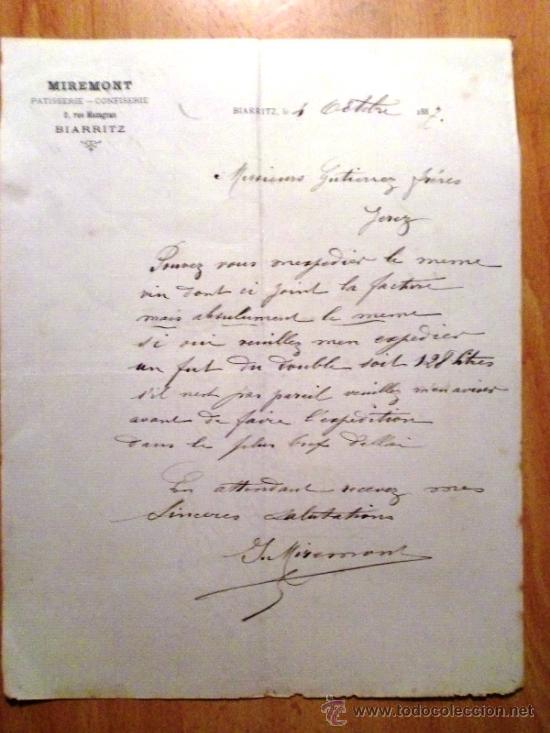 MIREMONT
PATISSERIE – CONFISERIE
2, rue Mazagran
BIARRITZ
BIARRITZ, le 4 Octbre 1887.
Messieurs Gutierrez frères
Jerez
Pouvez vous mexpedier le meme
vin dont ci joint la facture
mais absulument le meme
si oui veuillez men expedier
un fut du double soit 128 litres
s'il nest pas pareil veuillez m'en aviser
avant de faire l'expédition
dans le plus bref dellai
En attendant recevez mes
Sinceres salutations
Miremont
www.todocoleccion.net